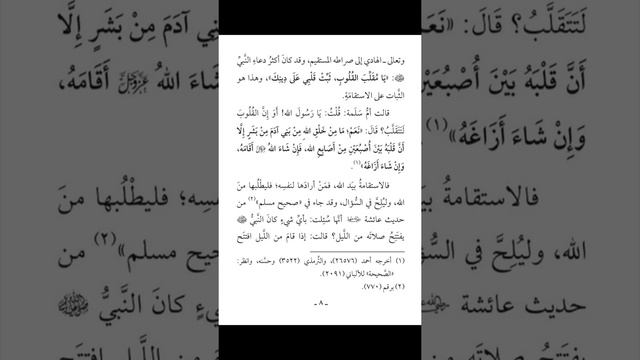 وتعالى ـ الهادي إلى صراطه المستقيم، وقد كانَ أكثرُ دعاءِ النَّبيِّ
ﷺ: «يَا مُقَلِّبَ القُلُوبِ، ثَبِّتْ قَلْبِي عَلَى دِينِكَ»، وهذا هو
الثَّبات على الاستقامَةِ.
قالت أمُّ سَلَمة: قُلْتُ: يَا رَسُولَ الله! أَوَ إِنَّ القُلُوبَ
لَتَتَقَلَّبُ؟ قَالَ: «نَعَمْ؛ مَا مِنْ خَلْقِ اللهِ مِنْ بَنِي آدَمَ مِنْ بَشَرٍ إِلَّا
أَنَّ قَلْبَهُ بَيْنَ أُصْبُعَيْنِ مِنْ أَصَابِعِ الله، فَإِنْ شَاءَ اللهُ عَزَّوَجَلَّ أَقَامَهُ،
وَإِنْ شَاءَ أَزَاغَهُ»(١).
فالاستقامةُ بيَد الله، فمَنْ أرادَها لنفسِه؛ فليطْلُبها منَ
الله، وليُلِحَّ في السُّؤال، وقد جاء في «صحيح مسلم»(٢) من
حديث عائشة رَضِيَ اللهُ عَنْهَا أنَّها سُئِلت: بأيِّ شيءٍ كانَ النَّبيُّ ﷺ
يفتَتِحُ صلاتَه من اللَّيل؟ قالت: إذا قامَ من اللَّيل افتتَح
(١) أخرجه أحمد (٢٦٥٧٦)، والتِّرمذي (٣٥٢٢) وحسَّنه، وانظر:
«الصَّحيحة» للألباني (٢٠٩١).
(٢) برقم (٧٧٠).
ـ ٨ ـ